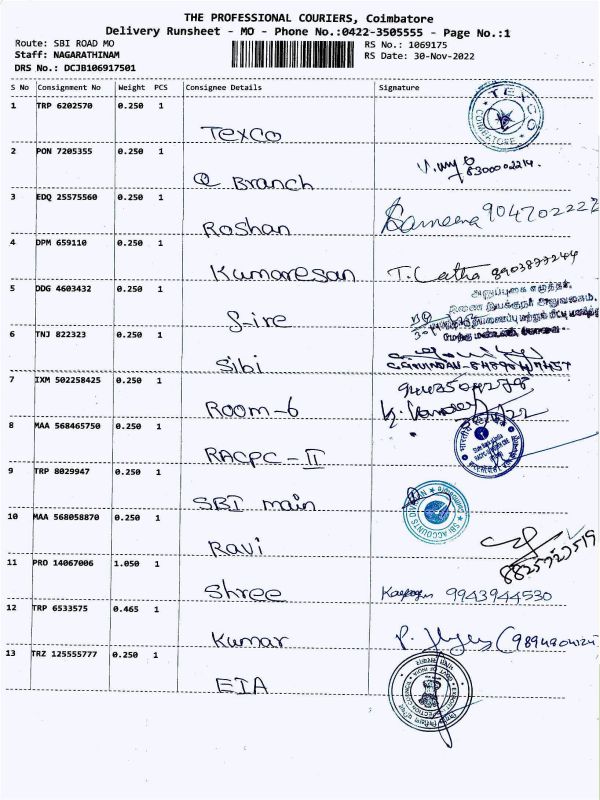 THE PROFESSIONAL COURIERS, Coimbatore
Delivery Runsheet - MO - Phone No.:0422-3505555 - Page No.:1
Route: SBI ROAD MO RS No.: 1069175
Staff: NAGARATHINAM RS Date: 30-Nov-2022
DRS No.: DCJB106917501
S No Consignment No Weight PCS Consignee Details Signature
1 TRP 6202570 0.250 1 Texco TEXCO COIMBATORE
2 PON 7205355 0.250 1 @ Branch 8300002214.
3 EDQ 25575560 0.250 1 Roshan Sameena 904702222
4 DPM 659110 0.250 1 Kumaresan T. Latha 8903877244
5 DDG 4603432 0.250 1 Fire
அனுப்புகை எழுத்தர்,
இணை இயக்குநர் அலுவலகம்,
6 TNJ 822323 0.250 1 Sibi
7 IXM 502258425 0.250 1 Room-6
8 MAA 568465750 0.250 1 RACPC - II
9 TRP 8029947 0.250 1 SBI main SBI ACCOUNTS
10 MAA 568058870 0.250 1 Ravi
8825723519
11 PRO 14067006 1.050 1 Shree 9943944530
12 TRP 6533575 0.465 1 Kumar
13 TRZ 125555777 0.250 1 EIA